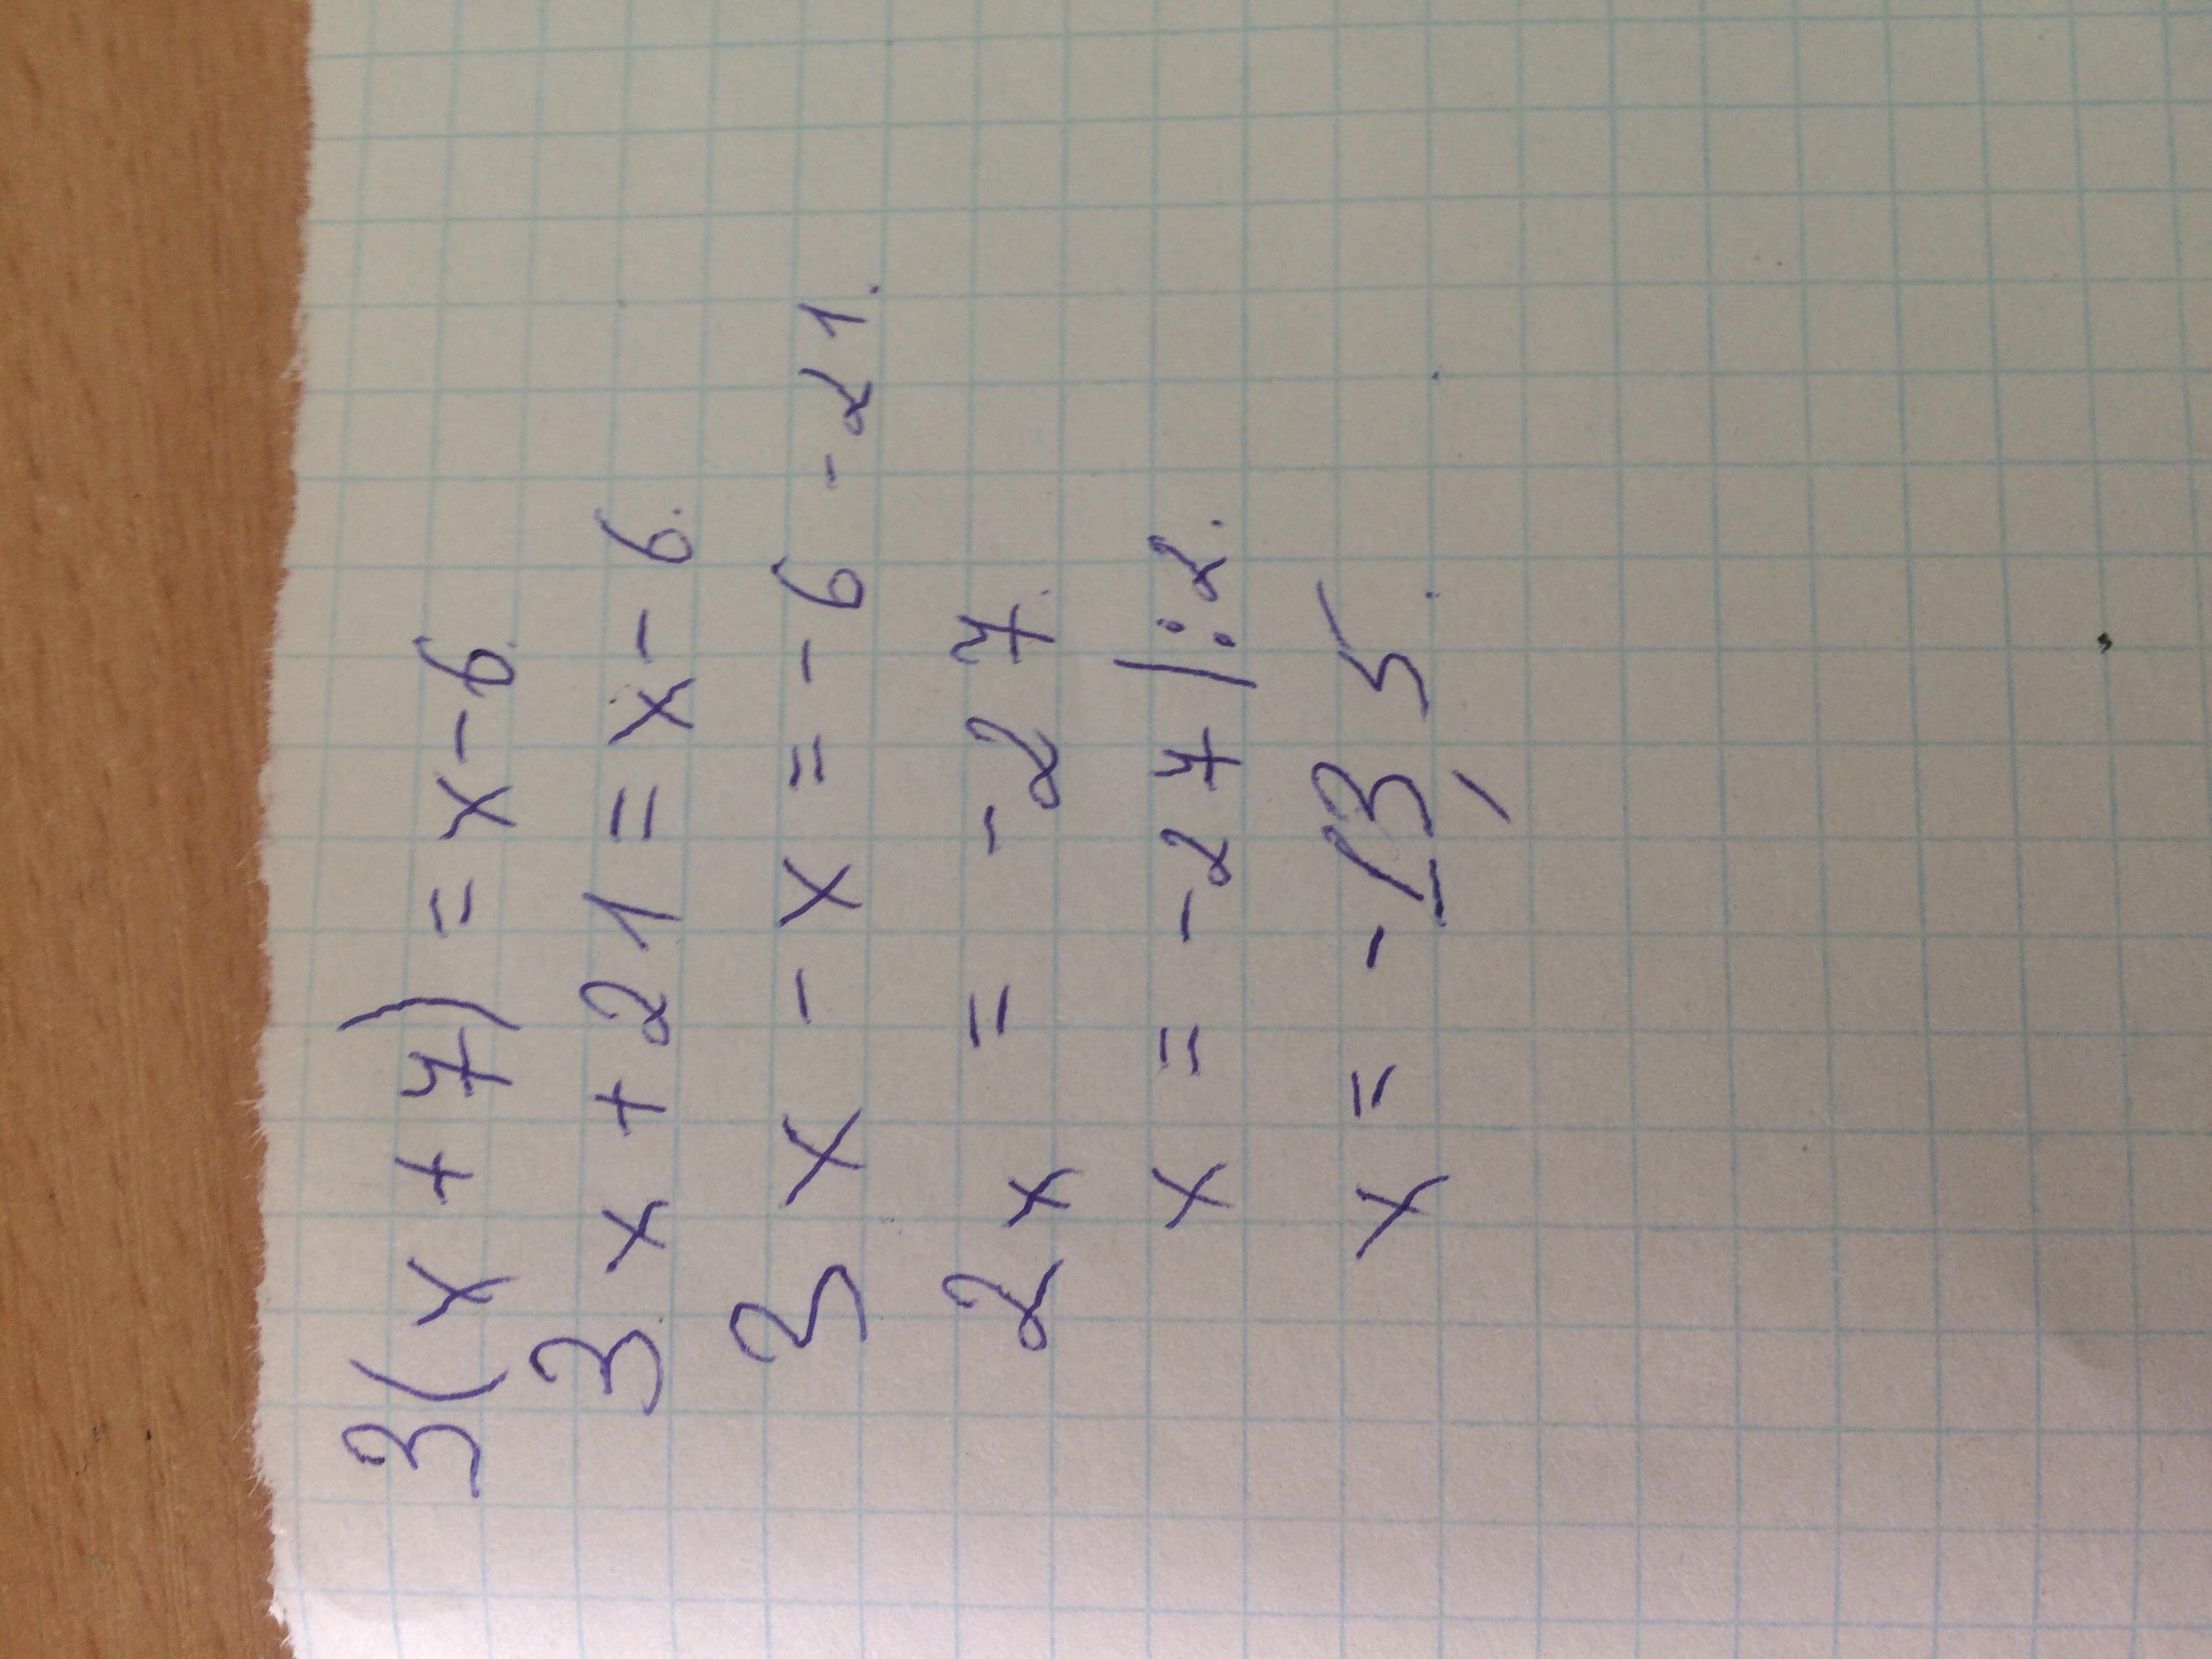 3(x+7)=x-6.
3x+21=x-6.
3x-x=-6-21.
2x=-27.
x=-27|:2.
x=-13,5.